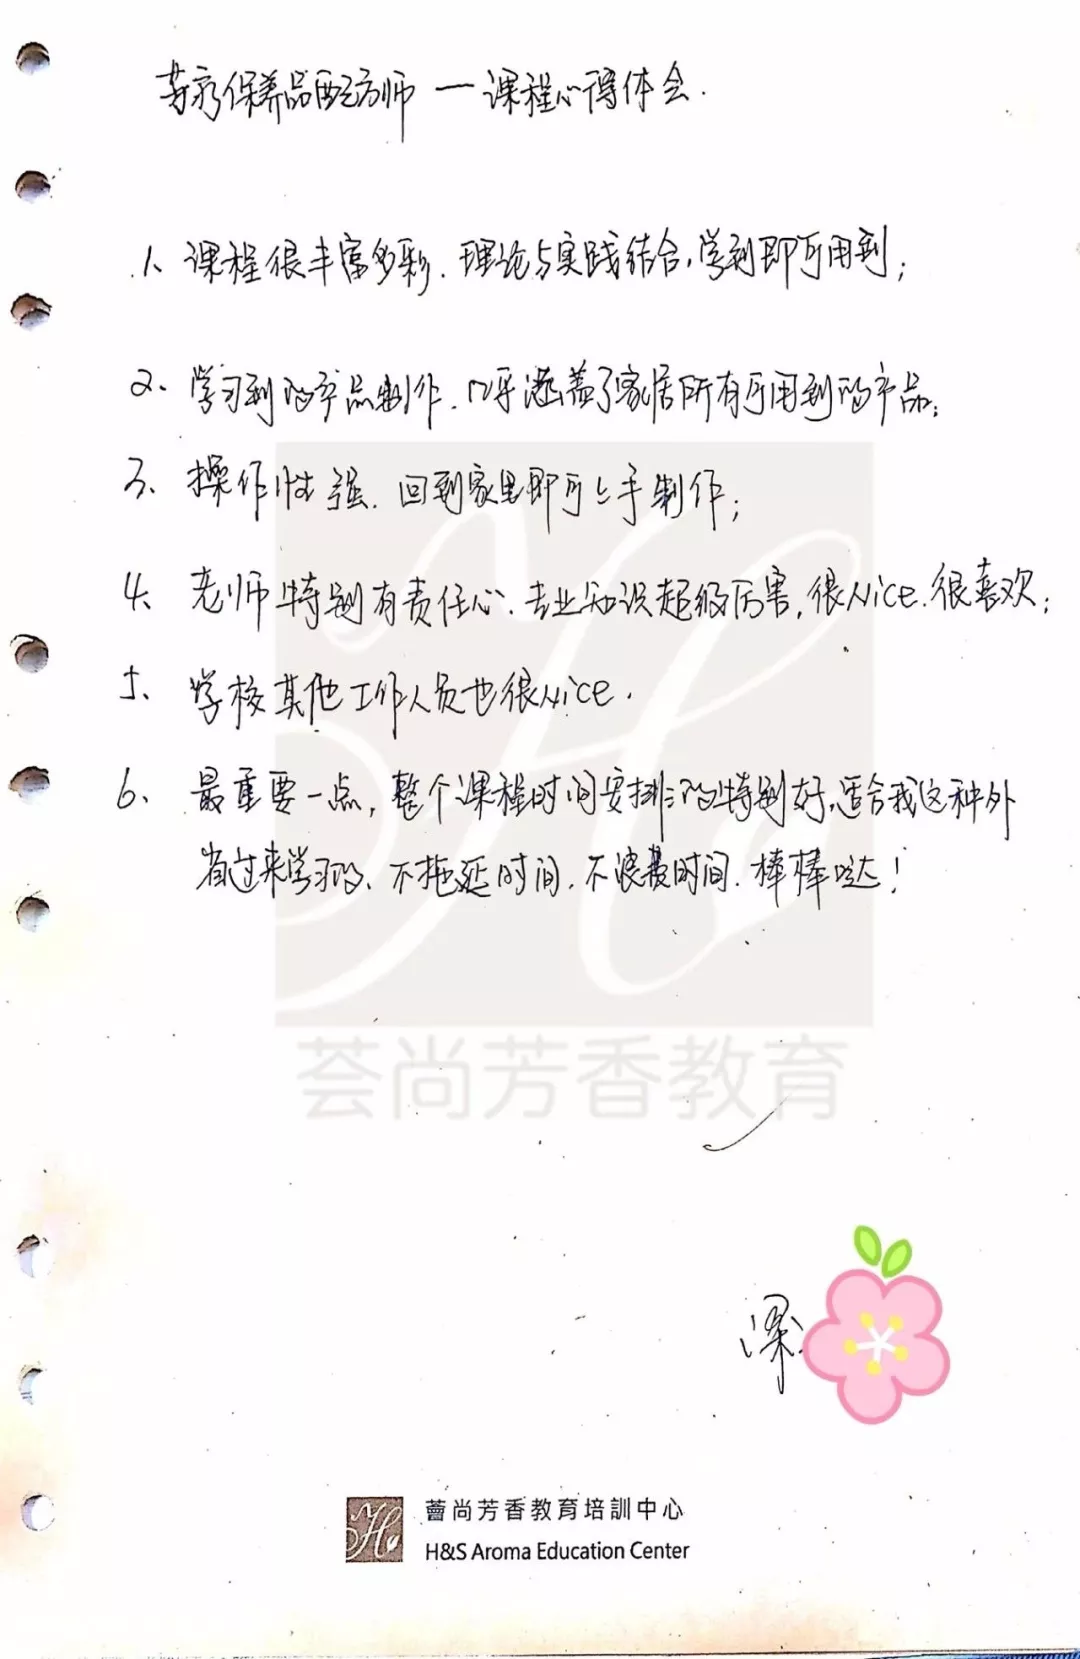 芳疗保养品配方师 — 课程心得体会.
1、课程很丰富多彩.理论与实践结合,学到即可用到;
2、学习到的产品制作.几乎涵盖了家居所有可用到的产品;
3、操作性强.回到家里即可上手制作;
4、老师特别有责任心.专业知识超级厉害,很Nice.很喜欢;
5、学校其他工作人员也很Nice.
6、最重要一点,整个课程时间安排的特别好,适合我这种外
省过来学习的、不拖延时间.不浪费时间.棒棒哒!
荟尚芳香教育
梁
薈尚芳香教育培訓中心
H&S Aroma Education Center